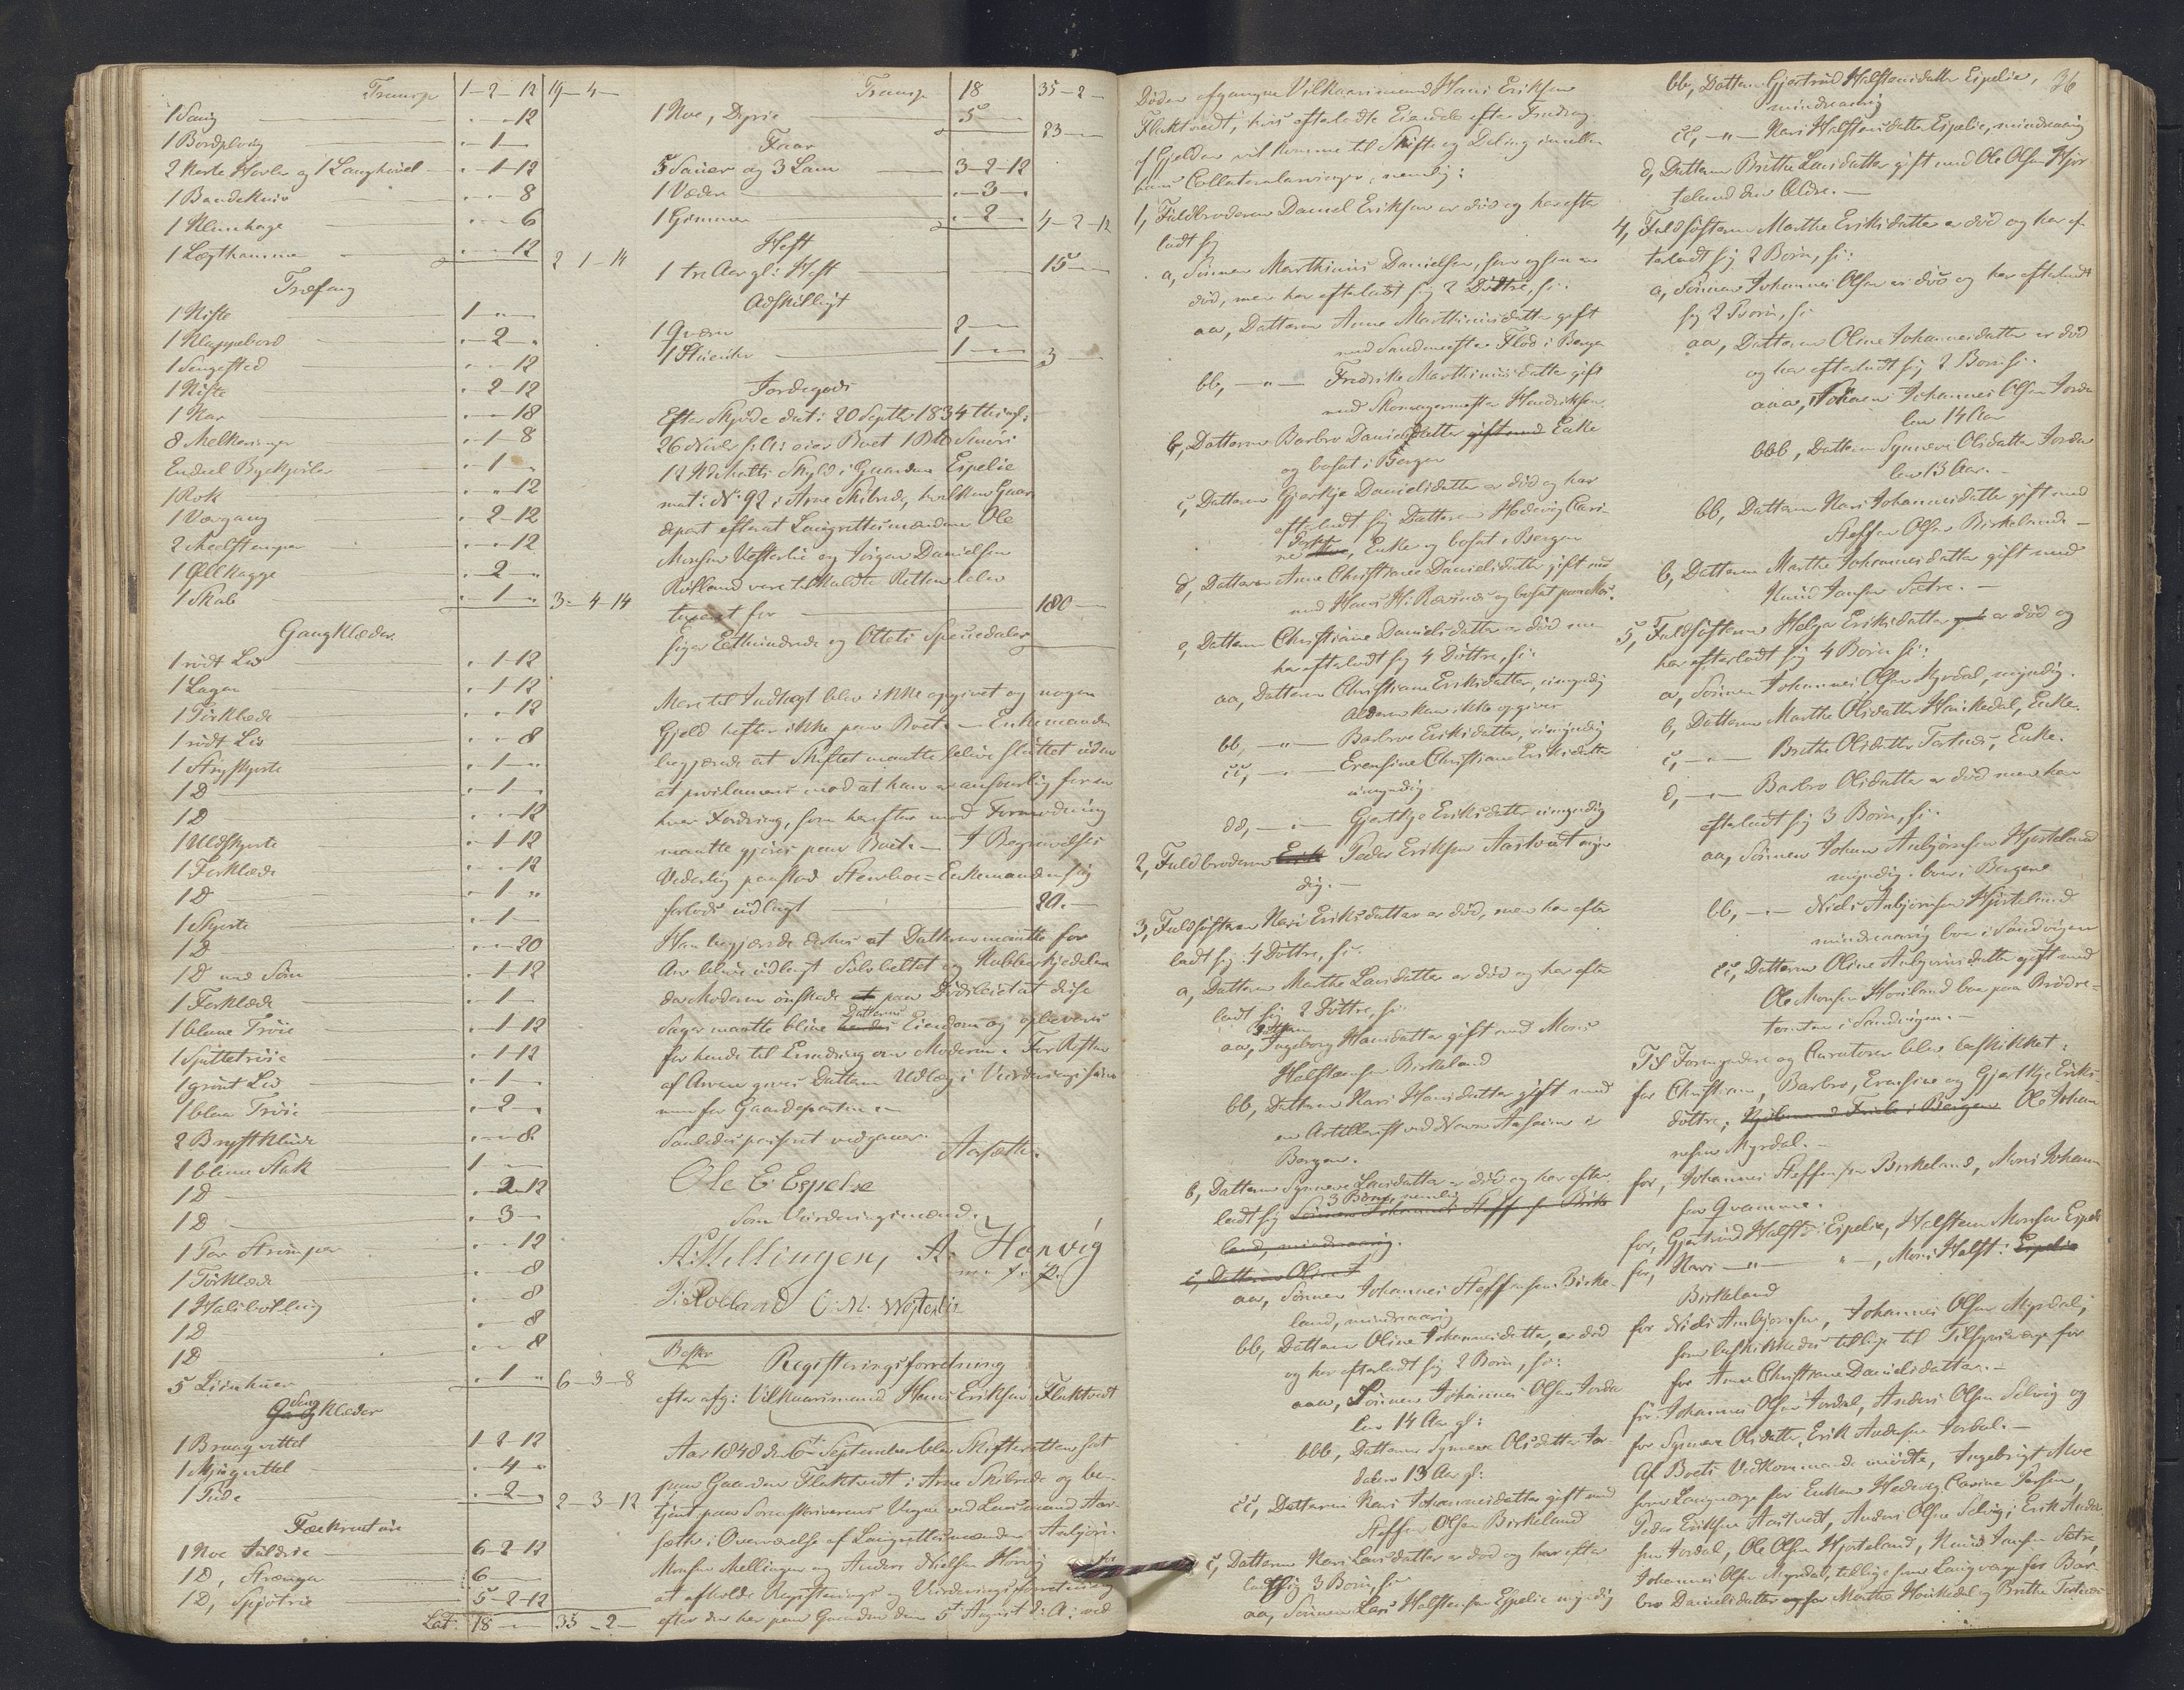 Transp 1-2-12 19-4-
1 Saug - - 12
1 Bordplovg - 1 -
2 Høvler og 1 Langhøvel - 1-12
1 Baandekniv - - 8
1 - - 6
1 Lægthammer - - 12 2-1-14
Træfang
1 Kiste 1 - -
1 Klappebord - 2 -
1 Sengested - - 12
1 Kiste - 2-12
1 Kar - - 18
8 Melkeringer - 1-8
Endeel - 1 -
1 Rok - - 12
1 Vævgang - 2-12
2 - - 12
1 Ølkagge - 2 -
1 Skab - 1 - 3-4-14
Gangklæder
1 rødt Liv - 1-12
1 Lagen - 1-12
1 Tørklæde - - 12
1 rødt Liv - - 8
1 Skjorte - 1 -
1 D - 1 -
1 D - - 12
1 Uldskjorte - 1-12
1 Forklæde - - 12
1 D - 1 -
1 Skjorte - 1 -
1 D - - 20
1 D med Søm - 1-12
1 Forklæde - 1 -
1 blaae Trøie - 1-12
1 Spittetrøie - 1-12
1 grønt Liv - 1 -
1 blaa Trøie - 2 -
2 Brystklude - - 8
1 blaae Stak 1 -
1 D - 2-12
1 D - 3 -
1 Par Strømper - - 12
1 Tørklæde - - 8
1 - - 8
1 D - - 8
1 D - - 8
5 Liinhuer - 1 - 6-3-8
Sengklæder
1 1-2-12
1 - 4 -
1 Pude - 2 - 2-3-12
Fækreature
1 Koe 6-2-12
1 D, 6 -
1 D, 5-2-12
Lat: 18 - 35-2-
Transp 18 35-2-
1 Koe, Dyrie 5 - 23 -
Faar
5 Sauer og 3 Lam 3-2-12
1 Væder - 3 -
1 Gimmer - 2 - 4-2-12
Hest
1 tre Aar gl: Hest 15 -
Adskilligt
1 Qværn 2 -
1 Stueuhr 1 - 3 -
Jordegods
Efter Skjøde dat: 20 Septbr 1834 thingl:
26 eier Boet 1 Smørs
12 Skyld i Gaarden Espelie
mat: No 92 i Arne Skibrede, hvilken Gaar
depart efterat Laugrettesmændene Ole
Monsen Vesterlie og Jørgen Danielsen
Rolland vare tilkaldte Retten blev
taxeret for 180 -
siger Eethundrede og Otteti Speciedaler
Mere til Indtægt blev ikke opgivet og nogen
Gjeld hefter ikke paa Boet. - Enkemanden
begjærede at Skiftet maatte blive sluttet uden
at proclamere mod at han er ansvarlig for en
hver Fordring, som herefter mod Formodning
maatte gjøres paa Boet. - I Begravelses
Vederlag paastod Sterboe-Enkemanden sig
forlods udlagt 20. -
Han begjærede derhos at Datteren maatte for
Arv blive udlagt Sølvbeltet og Kobberkjedelen
da Moderen ønskede at paa Dødsleiet at disse
Sager maatte blive Datterens Eiendom og opbevares
for hende til Erindring om Moderen. For Resten
af Arven gives Datteren Udlæg i Vurderingssum
men for Gaardeparten. -
Saaledes passeret vedgaaer. Aarsæth.
Ole E. Espelie
Som Vurderingsmænd.
A: Mellingen, A. Harvig
m. f. P.
J: Rolland O. M. Westerlie
Registeringsforretning
efter afg: Vilkaarsmand Hans Eriksen Flaktvedt
Aar 1848 den 6te September blev Skifteretten sat
paa Gaarden Flaktvedt i Arne Skibrede og be-
tjent paa Sorenskriverens Vegne ved Lensmand Aar-
sæth i Overværelse af Laugrettesmændene Anbjørn
Monsen Mellingen og Anders Nielsen Horvig for
at afholde Registerings og Vurderingsforretning
efter den her paa Gaarden den 5te August d: A: ved
36
Døden afgangne Vilkaarsmand Hans Eriksen
Flaktvedt, hvis efterladte Eiendele efter Fradrag
af Gjelden vil komme til Skifte og Deling imellem
hans Collateralarvinger, nemlig:
1, Fuldbroderen Daniel Eriksen er død og har efter
ladt sig
a, Sønnen Marthinus Danielsen, som ogsaa er
død, men har efterladt sig 2 Døttre, s:
aa, Datteren Anne Marthinusdatter gift
med Flod i Bergen
bb, -"- Fredrike Marthinusdatter gift
med Skomagermester Hendriksen.
b, Datteren Barbro Danielsdatter gift med Enke
og bosat i Bergen
c, Datteren Gjertkje Danielsdatter er død og har
efterladt sig Datteren Hedevig Cari-
ne, Enke og bosat i Bergen
d, Datteren Anne Christiane Danielsdatter gift med
med Hans H: Ravnaas og bosat paa Mos.
e, Datteren Christiane Danielsdatter er død men
har efterladt sig 4 Døttre, s:
aa, Datteren Christiane Eriksdatter, umyndig
Alderen kan ikke opgives
bb, -"- Barbroe Eriksdatter, umyndig
cc, -"- Erensine Christiane Eriksdatter
umyndig
dd, -"- Gjertkje Eriksdatter umyndig
2, Fuldbroderen Erik Peder Eriksen Aastvedt myn
dig. -
3, Fuldsøsteren Kari Eriksdatter er død, men har efter
ladt sig 4 Døttre, s:
a, Datteren Marthe Larsdatter er død og har efter
ladt sig 2 Døttre, s:
aa, Datteren Ingeborg Hansdatter gift med Mons
Halstensen Birkeland
bb, Datteren Kari Hansdatter gift med
en Artillerist ved Navn i
Bergen.
b, Datteren Synneve Larsdatter er død og har efter
ladt sig 3 Børn, nemlig Sønnen Johannes Steffensen Birke
land, mindreaarig.
c, Datteren Oline
aa, Sønnen Johannes Steffensen Birke-
land, mindreaarig
bb, Datteren Oline Johannesdatter, er død
og har efterladt sig 2 Børn, s:
aaa, Sønnen Johannes Olsen Jorda
len 14 Aar gl:
bbb, Datteren Synneve Olsdatter Jor-
dalen 13 Aar gl:
cc, Datteren Kari Johannesdatter gift med
Steffen Olsen Birkeland
c, Datteren Kari Larsdatter er død og har efter
ladt sig 3 Børn, s:
aa, Sønnen Lars Halstensen Espelie myndig
bb, Datteren Gjertrud Halstensdatter Espelie,
mindreaarig
cc, -"- Kari Halstensdatter Espelie, mindreaarig
d, Datteren Brithe Larsdatter gift med Ole Olsen Hjor
teland den Ældre. -
4, Fuldsøsteren Marthe Eriksdatter er død og har ef
terladt sig 2 Børn, s:
a, Sønnen Johannes Olsen er død og har efterladt
sig 2 Børn, s:
aa, Datteren Oline Johannesdatter er død
og har efterladt sig 2 Børn s:
aaa, Sønnen Johannes Olsen Jorda
len 14 Aar
bbb, Datteren Synneve Olsdatter Jorda
len 13 Aar. -
bb, Datteren Kari Johannesdatter gift med
Steffen Olsen Birkeland -
b, Datteren Marthe Johannesdatter gift med
Knud Jansen Sætre. -
5, Fuldsøsteren Helga Eriksdatter er død og
har efterladt sig 4 Børn s:
a, Sønnen Johannes Olsen Myrdal, myndig.
b, Datteren Marthe Olsdatter Haukedal, Enke.
c, -"- Brithe Olsdatter Tertnes, Enke.
d, -"- Barbro Olsdatter er død men har
efterladt sig 3 Børn, s:
aa, Sønnen Johan Anbjørnsen Hjorteland
myndig, boer i Bergen
bb, -"- Niels Anbjørnsen Hjorteland
mindreaarig boer i Sandvigen
cc, Datteren Oline Anbjørnsdatter gift med
Ole Monsen Hoviland boe paa Brødre-
tomten i Sandvigen. -
Til Formyndere og Curatorer blev beskikket:
for Christiane, Barbro, Erensine og Gjertkje Eriks-
døttre, Ole Johan
nesen Myrdal. -
for, Johannes Steffensen Birkeland, Mons Johann
sen Qvamme.
for, Gjertrud Halstd: Espelie, Halsten Monsen Espelie
for, Kari -"- -"-, Mons Halst: Espelie
Birkeland
for Niels Anbjørnsen, Johannes Olsen Myrdal,
som beskikkedes tillige til Tilsynsværge for
for Anne Christiane Danielsdatter. -
for Johannes Olsen Jordal, Anders Olsen Selvig og
for Synneve Olsdatter, Erik Andersen Jordal. -
Af Boets Vedkommende mødte, Ingebrigt Moe
som Laugværge for Enken Hedevig Carine
Peder Eriksen Aastvedt, Anders Olsen Selvig, Erik Ander
sen Jordal, Ole Olsen Hjorteland, Knud Jansen Sætre,
Johannes Olsen Myrdal, tillige som Laugværge for Bar
bro Danielsdatter og for Marthe Haukedal og Brithe Tertnes